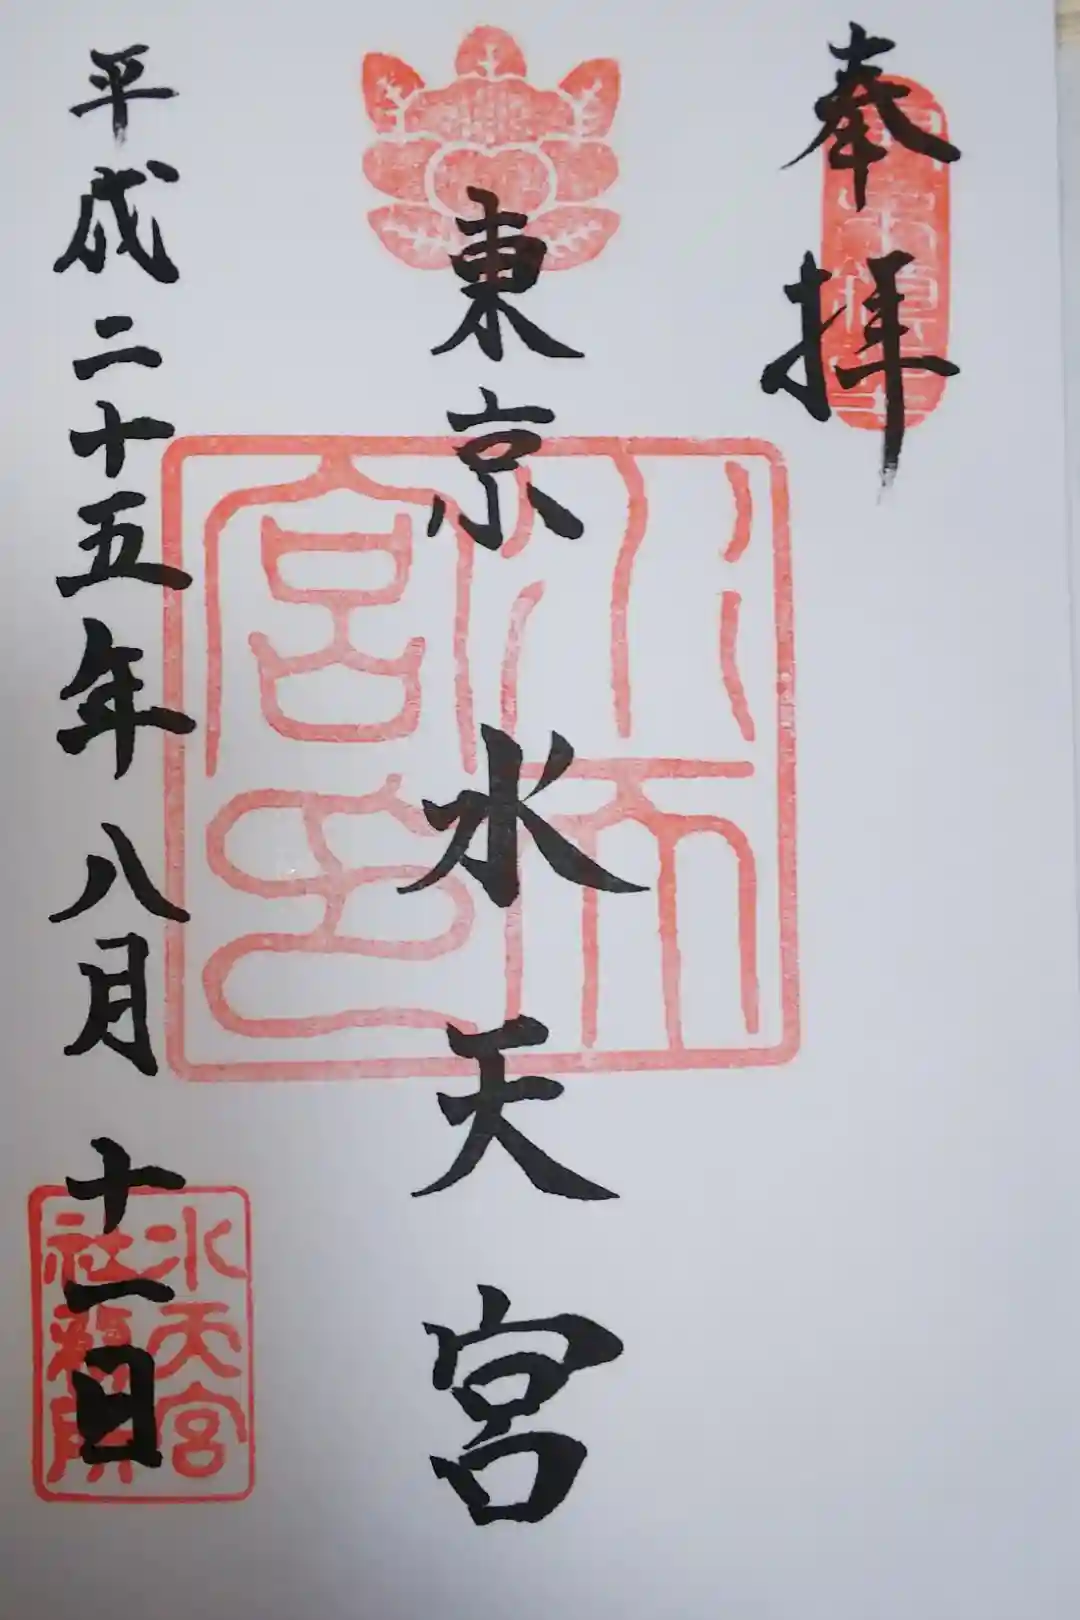 奉拝
東京水天宮
水天宮印
平成二十五年八月十一日
水天宮
社務所